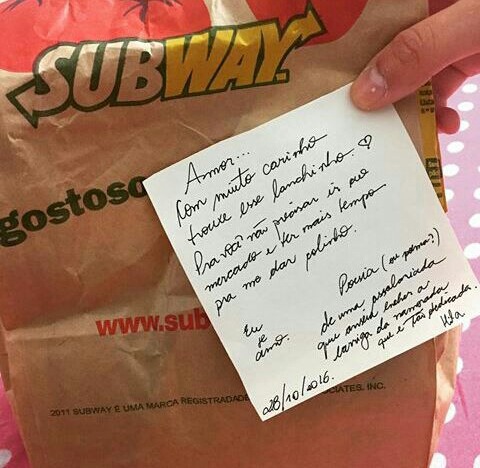 SUBWAY
gostoso
www.sub
2011 SUBWAY É UMA MARCA REGISTRADA DE ASSOCIATES, INC.
Amor...
Com muito carinho
trouxe esse lanchinho. ♡
Pra você não precisar ir ao
mercado e ter mais tempo
pra me dar colinho.
Eu
te
amo.
Poesia (ou poema?)
de uma assalariada
que ameia encher a
barriga da namorada
que é tão dedicada.
28/10/2016.